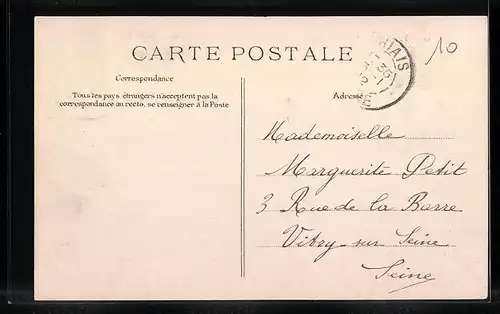 CARTE POSTALE
Correspondance
Tous les pays étrangers n'acceptent pas la
correspondance au recto, se renseigner à la Poste
Adresse
10
Mademoiselle
Marguerite Petit
3 Rue de la Barre
Vitry-sur Seine
Seine